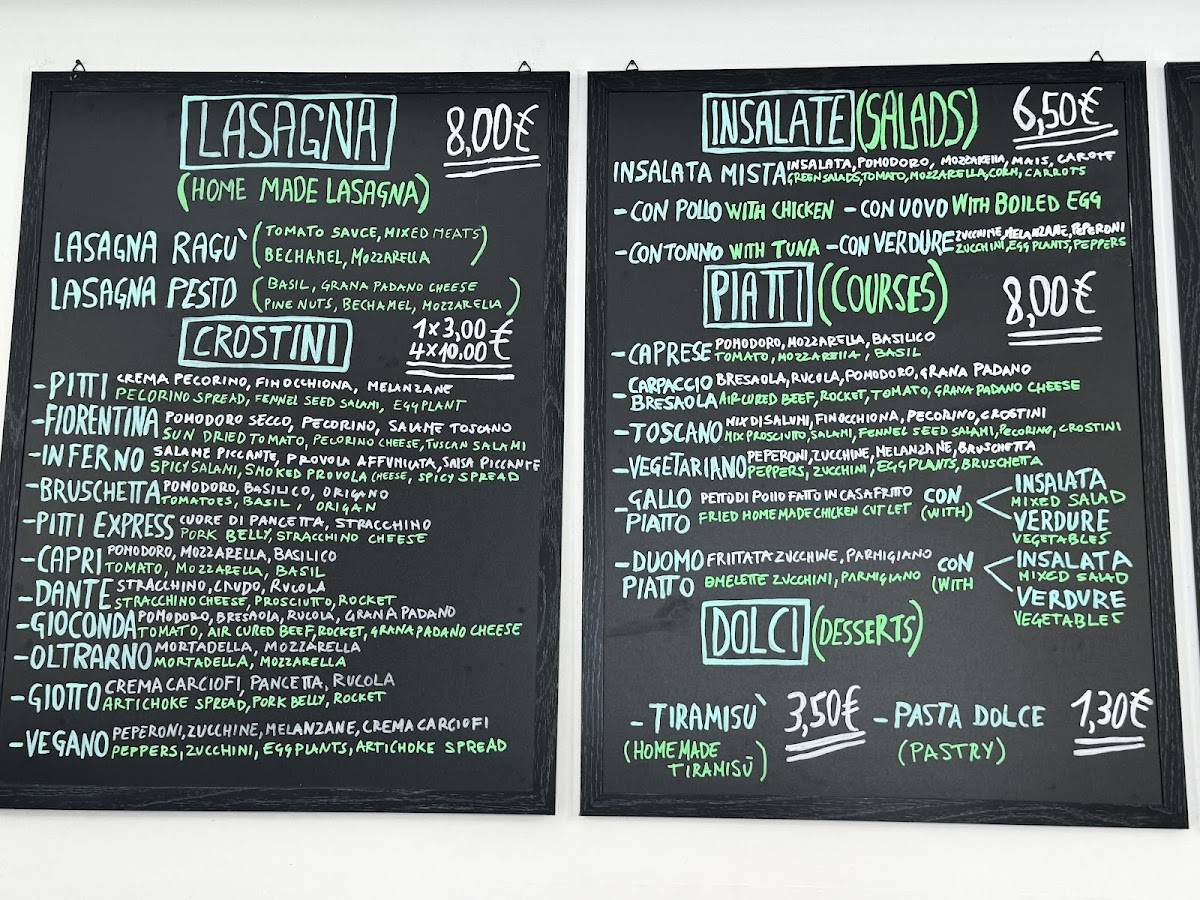 LASAGNA 8,00€
(HOME MADE LASAGNA)
LASAGNA RAGU' (TOMATO SAUCE, MIXED MEATS
BECHAMEL, MOZZARELLA)
LASAGNA PESTO (BASIL, GRANA PADANO CHEESE
PINE NUTS, BECHAMEL, MOZZARELLA)
CROSTINI 1x3,00€
4x10.00
-PITTI CREMA PECORINO, FINOCCHIONA, MELANZANE
PECORINO SPREAD, FENNEL SEED SALAMI, EGGPLANT
-FIORENTINA POMODORO SECCO, PECORINO, SALAME TOSCANO
SUN DRIED TOMATO, PECORINO CHEESE, TUSCAN SALAMI
-INFERNO SALAME PICCANTE, PROVOLA AFFUMICATA, SALSA PICCANTE
SPICY SALAMI, SMOKED PROVOLA CHEESE, SPICY SPREAD
-BRUSCHETTA POMODORO, BASILICO, ORIGANO
TOMATOES, BASIL, ORIGAN
-PITTI EXPRESS CUORE DI PANCETTA, STRACCHINO
PORK BELLY, STRACCHINO CHEESE
-CAPRI POMODORO, MOZZARELLA, BASILICO
TOMATO, MOZZARELLA, BASIL
-DANTE STRACCHINO, CRUDO, RUCOLA
STRACCHINO CHEESE, PROSCIUTTO, ROCKET
-GIOCONDA POMODORO, BRESAOLA, RUCOLA, GRANA PADANO
TOMATO, AIR CURED BEEF, ROCKET, GRANA PADANO CHEESE
-OLTRARNO MORTADELLA, MOZZARELLA
MORTADELLA, MOZZARELLA
-GIOTTO CREMA CARCIOFI, PANCETTA, RUCOLA
ARTICHOKE SPREAD, PORK BELLY, ROCKET
-VEGANO PEPERONI, ZUCCHINE, MELANZANE, CREMA CARCIOFI
PEPPERS, ZUCCHINI, EGGPLANTS, ARTICHOKE SPREAD
INSALATE (SALADS) 6,50€
INSALATA MISTA INSALATA, POMODORO, MOZZARELLA, MAIS, CAROTE
GREEN SALADS, TOMATO, MOZZARELLA, CORN, CARROTS
-CON POLLO WITH CHICKEN -CON UOVO WITH BOILED EGG
-CON TONNO WITH TUNA -CON VERDURE ZUCCHINE, MELANZANE, PEPERONI
ZUCCHINI, EGG PLANTS, PEPPERS
PIATTI (COURSES) 8,00€
-CAPRESE POMODORO, MOZZARELLA, BASILICO
TOMATO, MOZZARELLA, BASIL
-CARPACCIO BRESAOLA, RUCOLA, POMODORO, GRANA PADANO
-BRESAOLA AIR CURED BEEF, ROCKET, TOMATO, GRANA PADANO CHEESE
-TOSCANO MIX DI SALUMI, FINOCCHIONA, PECORINO, CROSTINI
MIX PROSCIUTTO, SALAMI, FENNEL SEED SALAMI, PECORINO, CROSTINI
-VEGETARIANO PEPERONI, ZUCCHINE, MELANZANE, BRUSCHETTA
PEPPERS, ZUCCHINI, EGG PLANTS, BRUSCHETTA
-GALLO PETTO DI POLLO FATTO IN CASA FRITTO CON INSALATA
MIXED SALAD
PIATTO FRIED HOME MADE CHICKEN CUTLET (WITH) VERDURE
VEGETABLES
-DUOMO FRITTATA ZUCCHINE, PARMIGIANO CON INSALATA
MIXED SALAD
PIATTO OMELETTE ZUCCHINI, PARMIGIANO (WITH VERDURE
VEGETABLES
DOLCI (DESSERTS)
-TIRAMISU' 3,50€ -PASTA DOLCE 1,30€
(HOMEMADE (PASTRY)
TIRAMISÙ)